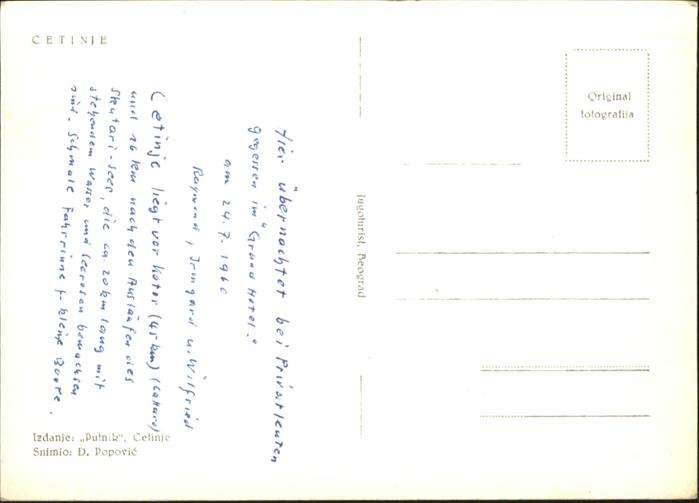 CETINJE
Hier übernachtet bei Privatleuten
gegessen im "Grand Hotel."
am 24.7.1960
Raymund, Irmgard u. Wilfried
Cetinje liegt vor Kotor (45 km) (Cattaro)
und 16 km nach den Ausläufen des
Skutari-Sees, die ca 20 km lang mit
stehendem Wasser und Seerosen bewachsen
sind. Schmale Fahrrinne f. kleine Boote.
Izdanje: „Putnik", Cetinje
Snimio: D. Popović
Jugoturist, Beograd
Original
fotografija